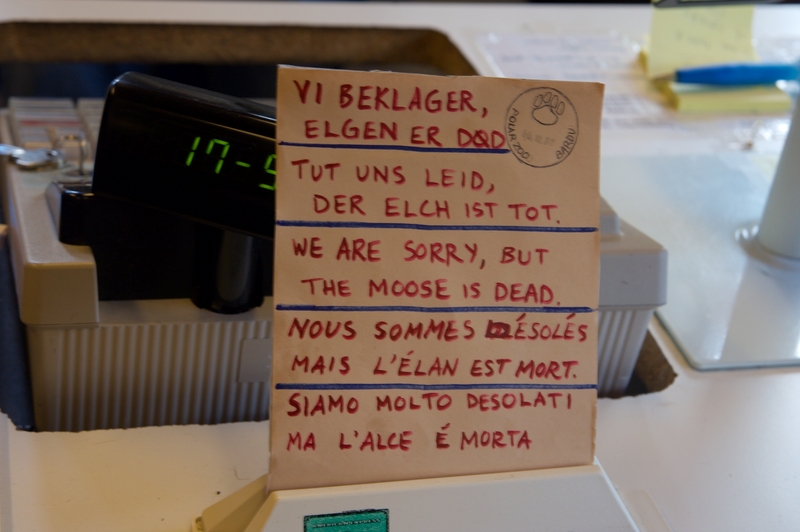 VI BEKLAGER,
ELGEN ER DØD
POLAR ZOO
BARDU
TUT UNS LEID,
DER ELCH IST TOT.
WE ARE SORRY, BUT
THE MOOSE IS DEAD.
NOUS SOMMES DÉSOLÉS
MAIS L'ÉLAN EST MORT.
SIAMO MOLTO DESOLATI
MA L'ALCE É MORTA
17-5
AMERICAN EXPRESS